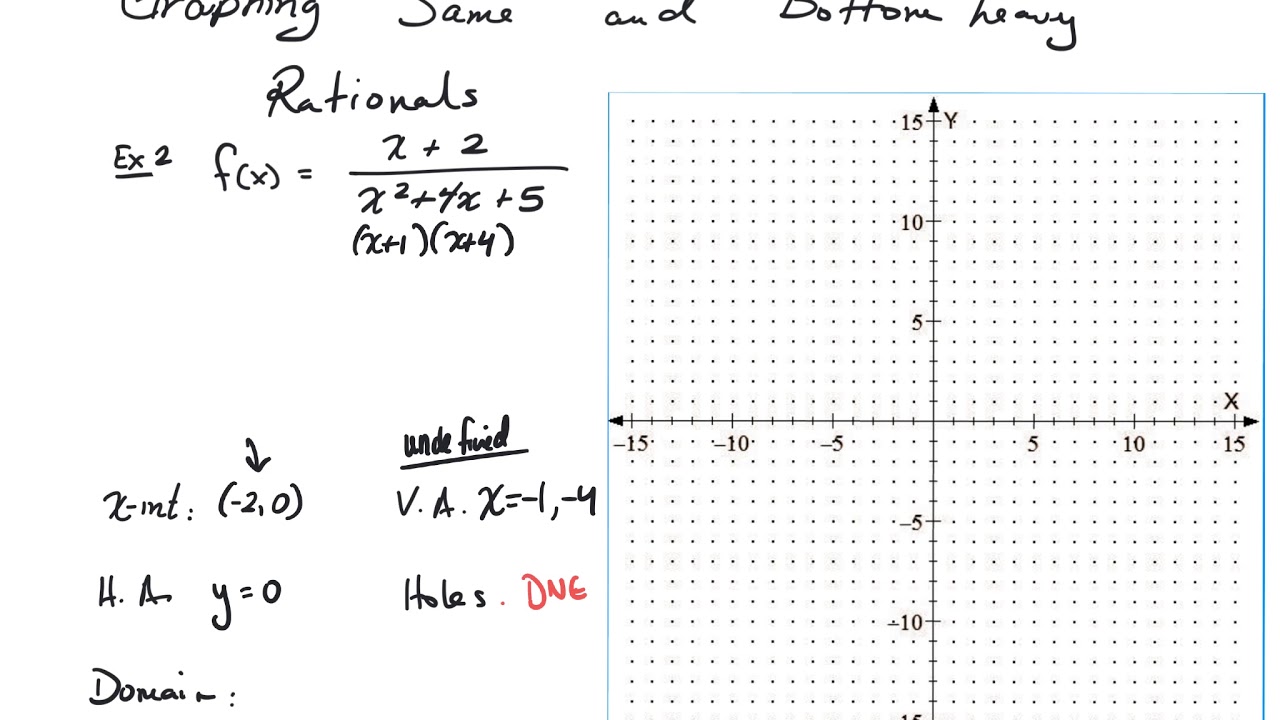 Graphing Same and Bottom heavy
Rationals
Ex 2 f(x) = x + 2
x²+4x +5
(x+1)(x+4)
undefined
x-int: (-2,0) V.A. x=-1,-4
H.A. y=0 Holes. DNE
Domain:
15 Y
10
5
X
-15 -10 -5 5 10 15
-5
-10
-15